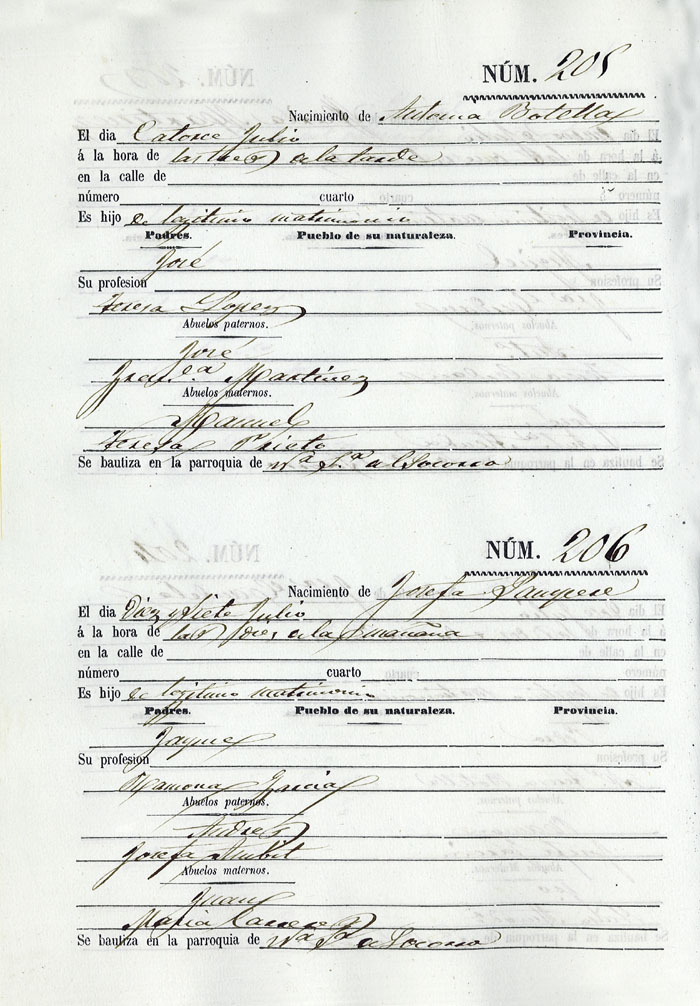 NÚM. 205
Nacimiento de Antonia Botella
El dia Catorce Julio
á la hora de las tres de la tarde
en la calle de
número cuarto
Es hijo de legitimo matrimonio
Padres. Pueblo de su naturaleza. Provincia.
José
Su profesion
Teresa Lopez
Abuelos paternos.
José
Fran.ca Martinez
Abuelos maternos.
Manuel
Teresa Prieto
Se bautiza en la parroquia de Nª Sª del Socorro
NÚM. 206
Nacimiento de Josefa
El dia Diez y Siete Julio
á la hora de las dies de la mañana
en la calle de
número cuarto
Es hijo de legitimo matrimonio
Padres. Pueblo de su naturaleza. Provincia.
Jayme
Su profesion
Ramona Garcia
Abuelos paternos.
Andres
Josefa
Abuelos maternos.
Juan
Maria
Se bautiza en la parroquia de Nª Sª de Socorro